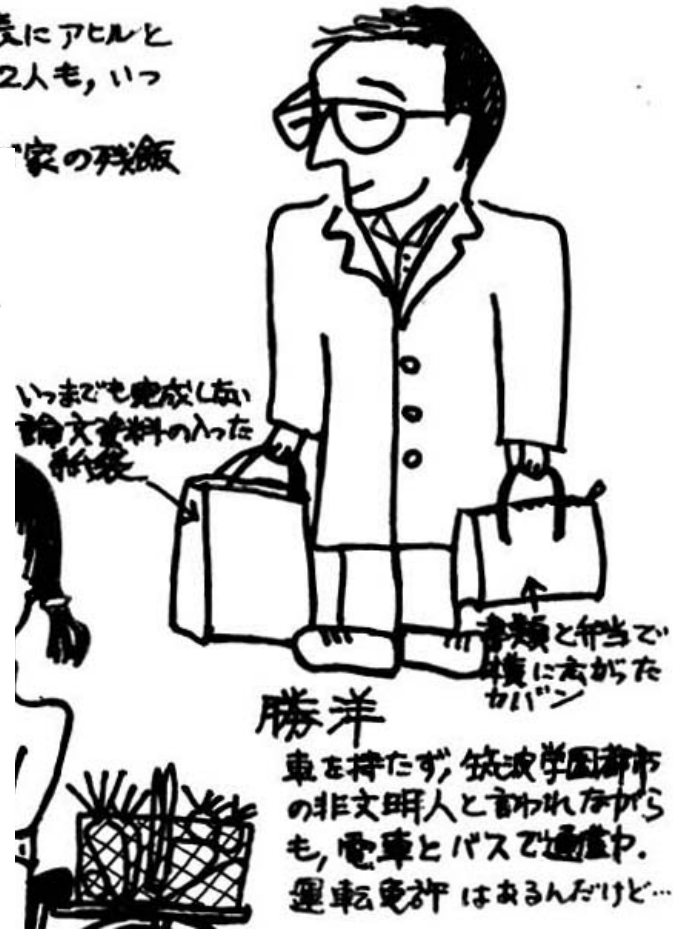 にアヒルと
2人も,いつ
家の残飯
いつまでも完成しない
論文資料の入った
紙袋
書類と弁当で
横に広がった
カバン
勝洋
車を持たず,筑波学園都市
の非文明人と言われながら
も,電車とバスで通勤中.
運転免許はあるんだけど…